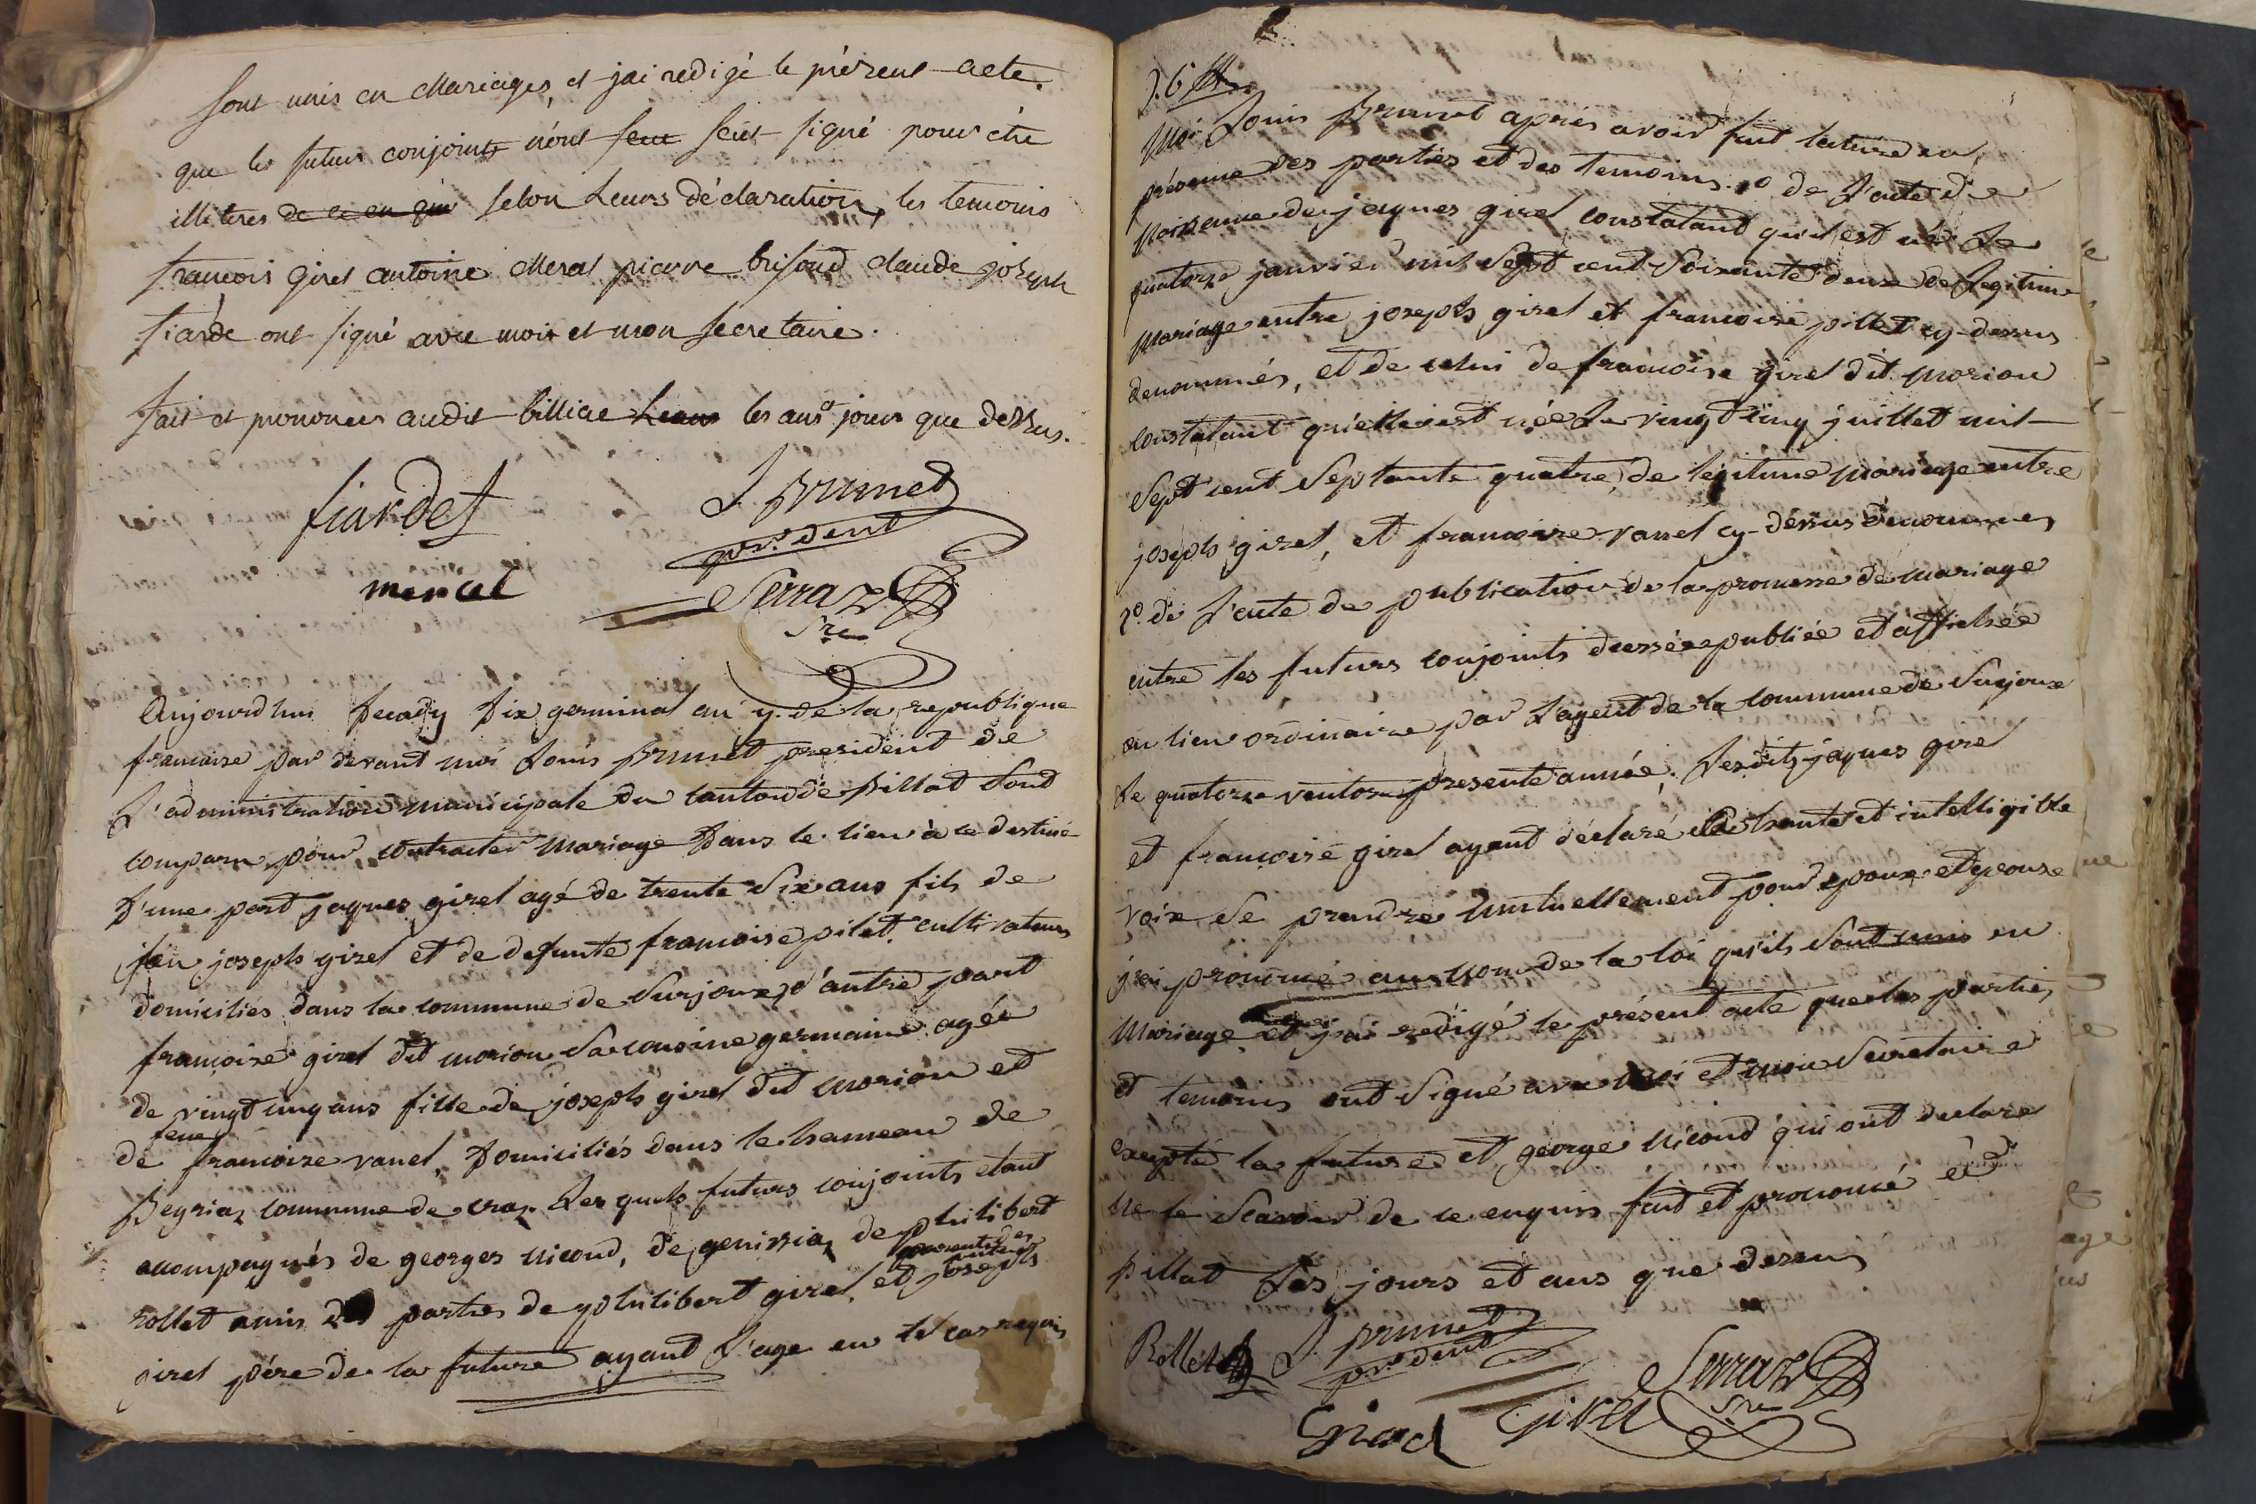 sont unis en Mariages, et jai redigé le présent acte.
que les futurs conjoints n'ont seu signé pour être
illiteres de ce en qui selon Leurs déclaration, les temoins
francois girel antoine Meral piarre brifoud claude joseph
fiarde ont signé avec moi et mon secretaire.
fait et prononcer audit billiac les ans jour que dessus.
fiardet
J. Brunet
prsident
mercel
Serraz
Sre
Aujourdhui Decady Dix germinal an y. de la republique
francaise par devant moi Louis Brunet president de
L'administration municipale du Canton de Billat sont
comparu pour contracter mariage Dans le lieu à ce destiné
D'une part jaques girel agé de trente six ans fils de
feu joseph girel et de defunte francoise pilet cultivateurs
domiciliés dans la commune de Surjoux, d'autre part
francoise girel dit morion sa cousine germaine agée
de vingt cinq ans fille de joseph girel dit morion et
de feue francoise vanel, Domiciliés dans le hameau de
Beyriaz commune de craz. Lesquels futurs conjoints etant
accompagnés de georges nicoud, de genissiaz de philibert
rollet amis des parties de philibert girel parents des parties et joseph
girel père de la future ayant l'age en tel cas requis
Moi Louis Brunet après avoir fait lecture en
présence des parties et des temoins 1º de L'acte de
Naissance de jaques girel constatant qu'il est né Le
quatorze janvier mil sept cent soixante deux de Legitime
Mariage entre joseph girel et francoise pillet cy-dessus
denommés, et de celui de francoise girel dit morion
constatant qu'elle est née Le vingt cinq juillet mil
sept cent septante quatre, de legitime mariage entre
joseph girel, et francoise vanel cy-dessus denommés
2º. de L'acte de publication de la promesse de mariage
entre les futurs conjoints dressée publiée et affichée
au lieu ordinaire par L'agent de la commune de Surjoux
Le quatorze ventose presente année. Lesdits jaques girel
et francoise girel ayant déclaré à haute et intelligible
voix se prendre mutuellement pour epoux et epouse
j'ai prononcé au nom de la loi qu'ils sont unis en
mariage et j'ai redigé le présent acte que les parties
et temoins ont signé avec moi et mon secretaire
excepté la future et george nicoud qui ont declaré
ne le scavoir de ce enquis fait et prononcé à
Billat Les jours et ans que dessus
Rollet J. Brunet
prsident
Serraz
Sre
Girel Girel